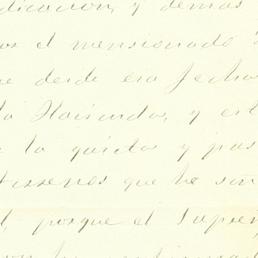 dicacion, y demas
os el mensionado
ue desde esa fecha
la Hacienda, y est
e la quieta y pas
terrenos que he
l, porque el Suprem